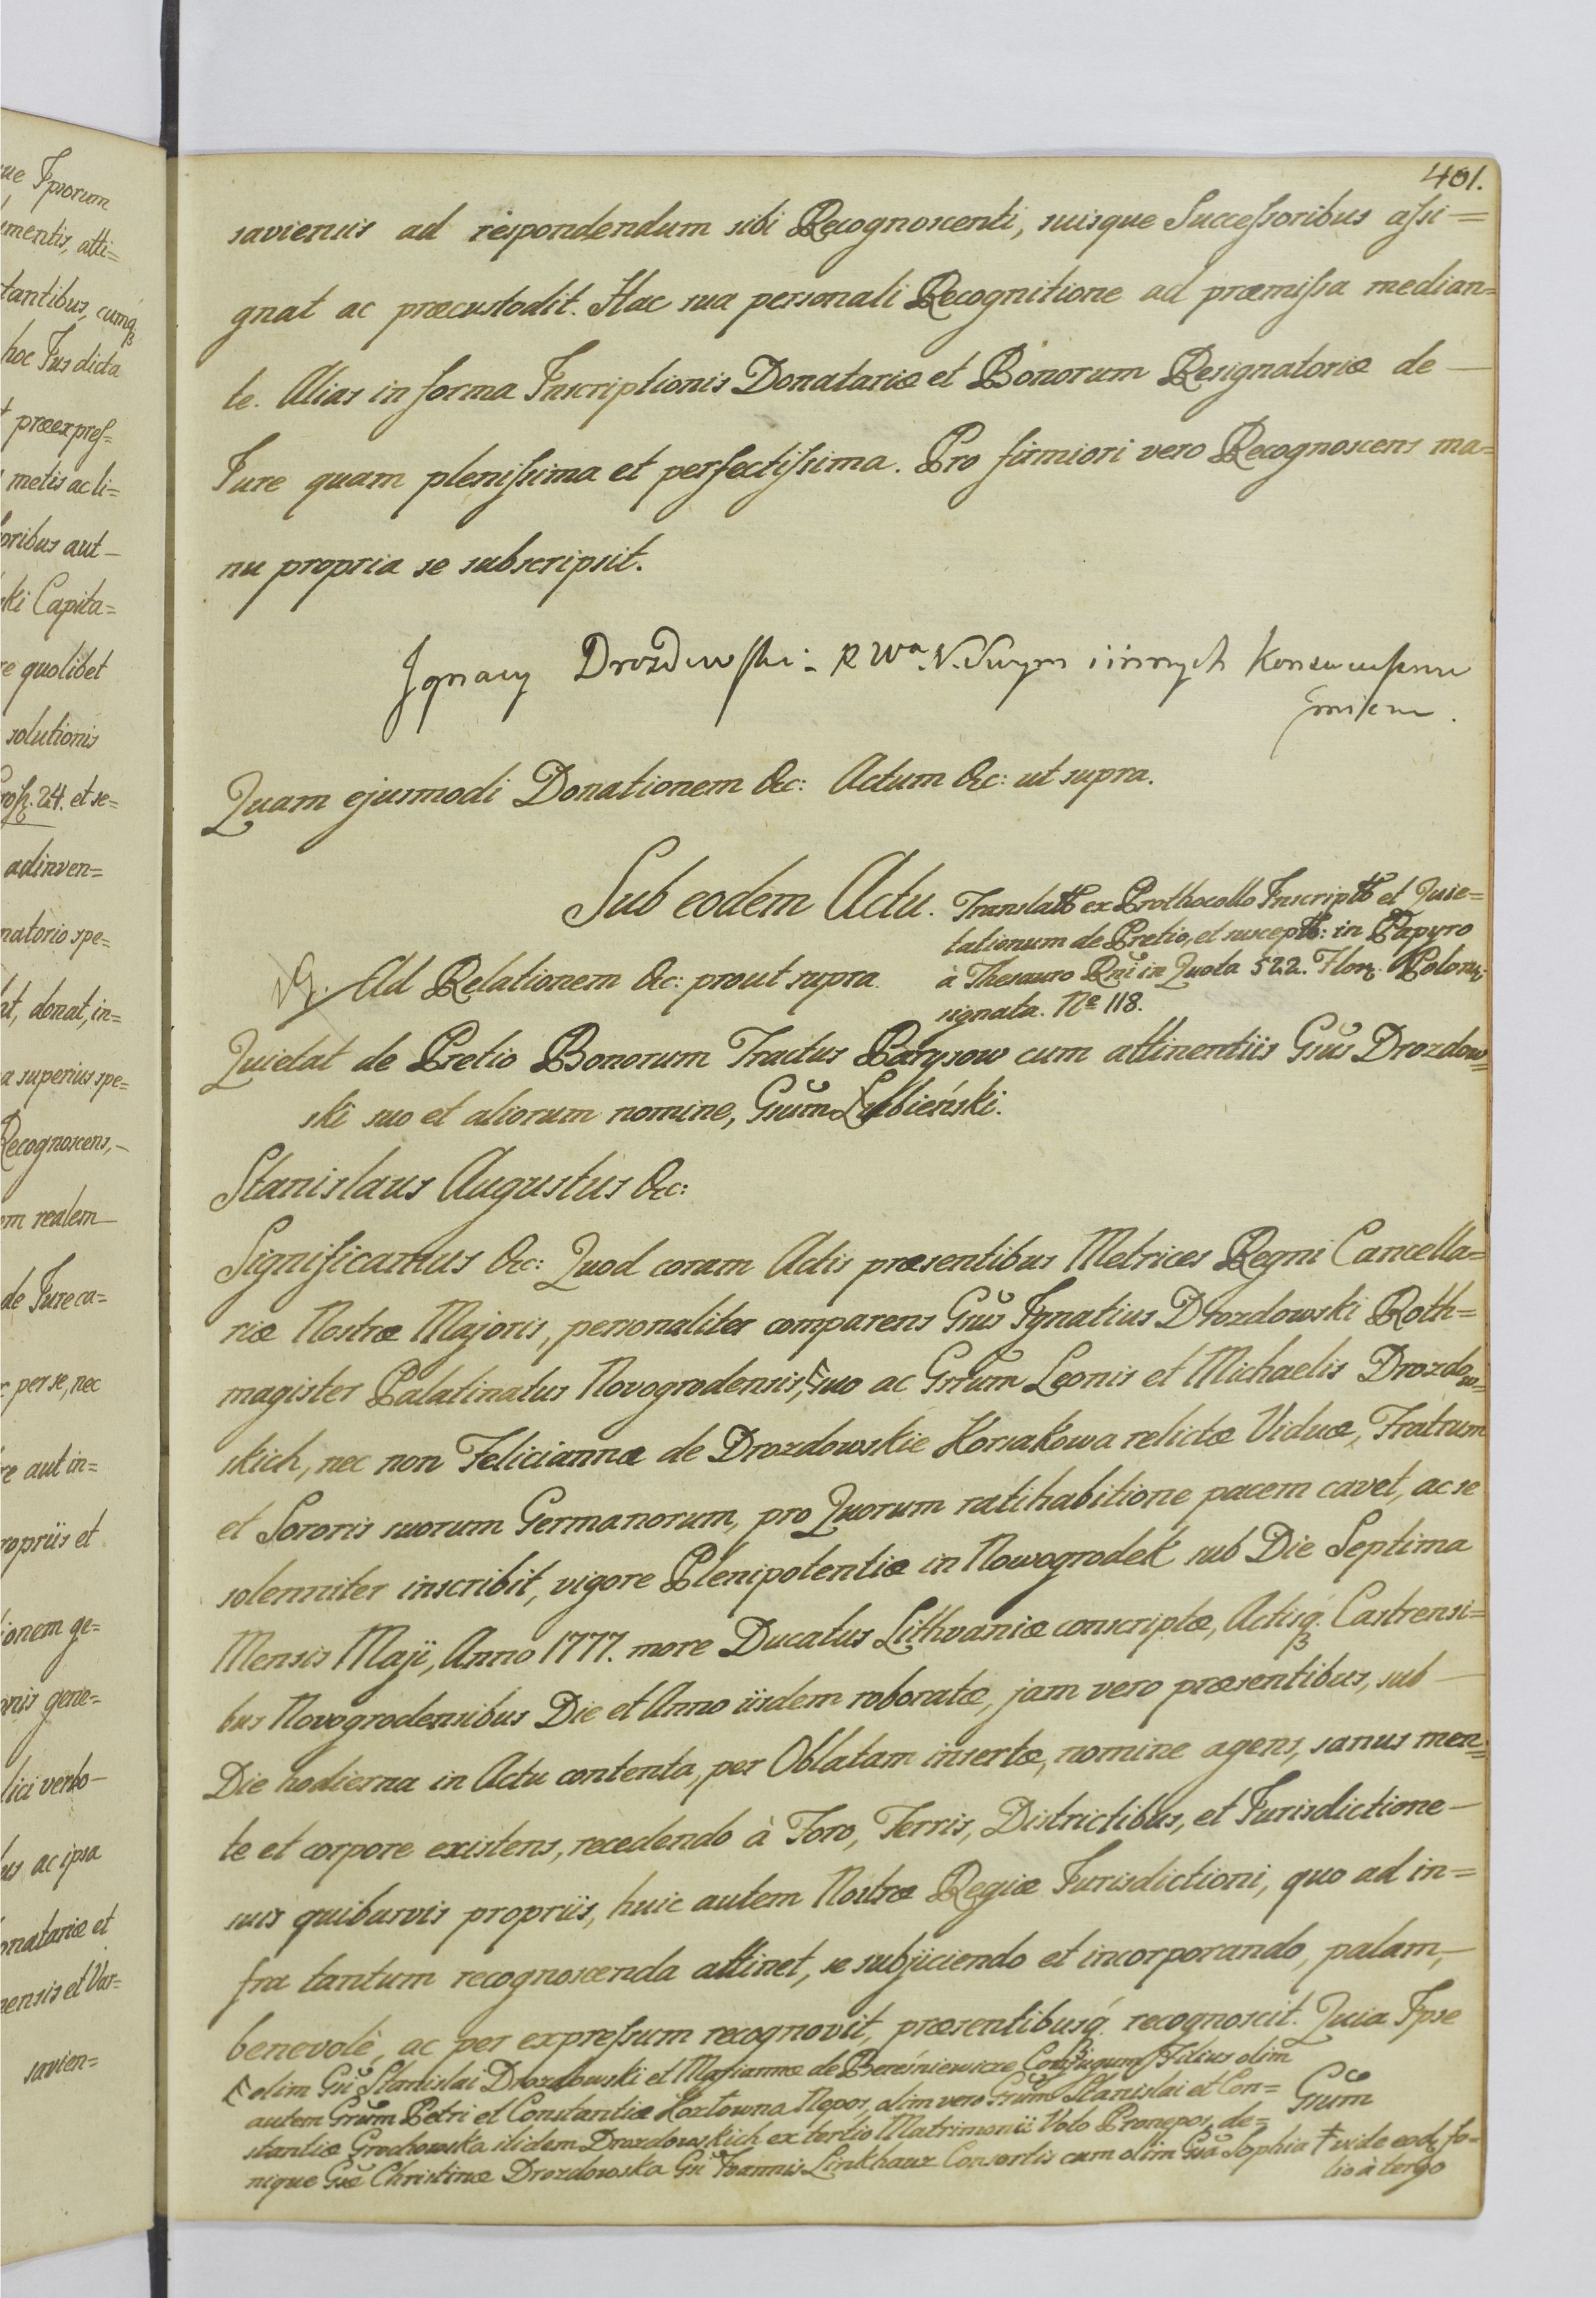 ue Ipsorum
mentis, atti=
tantibus, cumq́
hoc Jus dicta
præexpreſ=
metis ac li=
oribus aut —
ki Capita=
re quolibet
solutionis
24. et se=
adinven=
natorio spe=
at, donat, in=
a superius spe=
Recognoscens, —
em realem —
de Jure ca=
per se, nec
re aut in=
ropriis et
ionem ge=
nis gene=
lici verbo —
us ac ipsa
onatariæ et
ensis et Var=
savien=
401.
saviensis ad respondendum sibi Recognoscenti, suisque Succeſsoribus aſsi=
gnat ac præcustodit. Hac sua personali Recognitione ad præmiſsa median=
te. Alias in forma Inscriptionis Donatariæ et Bonorum Resignatoriæ de —
Jure quam pleniſsima et perfectiſsima. Pro firmiori vero Recognoscens ma=
nu propria se subscripsit.
Ignacy Drozdowſki R Wa N. Swym i innych
Imieniem.
Quam ejusmodi Donationem &c: Actum &c: ut supra.
Sub eodem Actu.
Translatt ex Prothocollo Inscriptt et Quie=
tationum de Pretio, et susceptt: in Papyro
à Thesauro Rni in Quota 522. Flor. Polon:
signata. No 118.
Ad Relationem &c: prout supra.
Quietat de Pretio Bonorum Tractus Parysow cum attinentiis Gsus Drozdow=
ski suo et aliorum nomine, Gsum Łubieński.
Stanislaus Augustus &c:
Significamus &c: Quod coram Actis præsentibus Metrices Regni Cancella=
riæ Nostræ Majoris, personaliter comparens Gsus Ignatius Drozdowski Roth=
magister Palatinatus Novogrodensis, suo ac Grum Leonis et Michaelis Drozdow=
skich, nec non Feliciannæ de Drozdowskie Korsakowa relictæ Viduæ, Fratrum
et Sororis suorum Germanorum, pro Quorum ratihabitione pacem cavet, ac se
solenniter inscribit, vigore Plenipotentiæ in Nowogrodek sub Die Septima
Mensis Maji, Anno 1777. more Ducatus Lithvaniæ conscriptæ, Actisq́ Castrensi=
bus Novogrodensibus Die et Anno iisdem roboratæ, jam vero præsentibus, sub —
Die hodierna in Actu contenta, per Oblatam insertæ, nomine agens, sanus men=
te et corpore existens, recedendo à Foro, Terris, Districtibus, et Jurisdictione —
suis quibusvis propriis, huic autem Nostræ Regiæ Jurisdictioni, quo ad in=
fra tantum recognoscenda attinet, se subjiciendo et incorporando, palam, —
benevolè, ac per expreſsum recognovit, præsentibusq́ recognoscit. Quia Ipse
olim Gsi Stanislai Drozdowski et Mariannæ de Bereśniewicze Conjugum Filius olim
Gsum
autem Grum Petri et Constantiæ Kozłowna Nepos, olim vero Grum Stanislai et Con=
stantiæ Grochowska itidem Drozdowskich ex tertio Matrimonii Voto Pronepos, de=
nique Gsæ Christinæ Drozdowska Gsi Joannis Linkhauz Consortis cum olim Gsa Sophia † vide eod fo=
lio à tergo